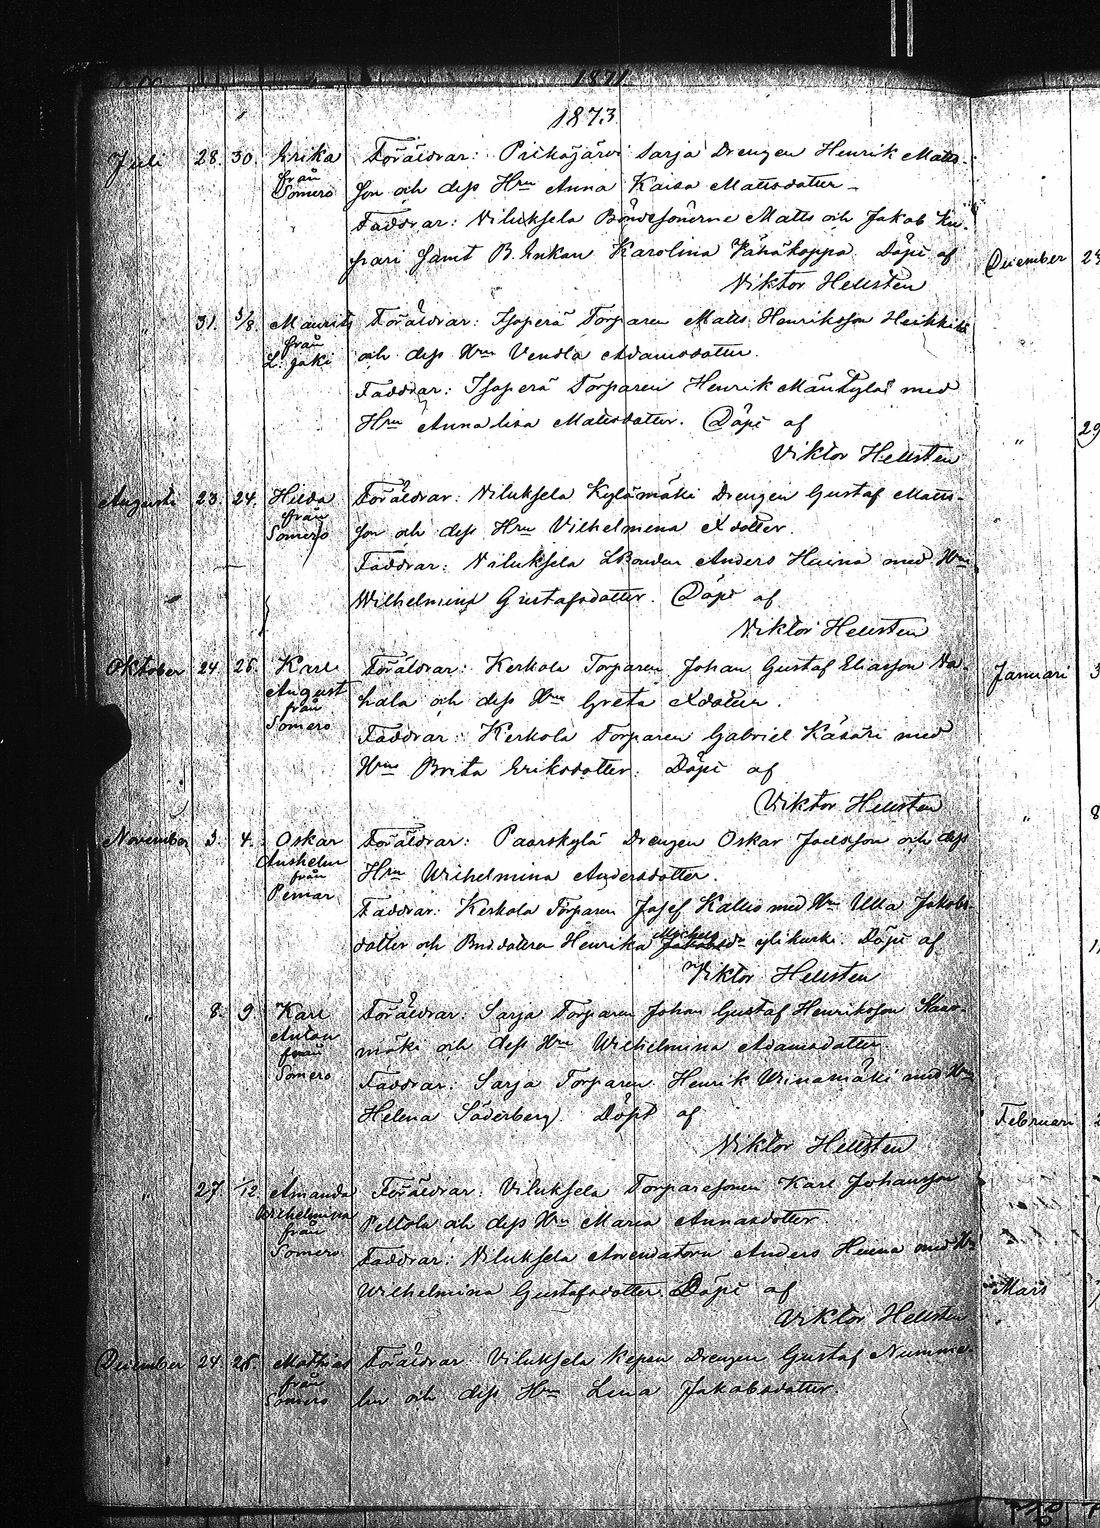 1873.
Juli 28. 30. Erika Föräldrar: Pitkäjärvi Sarja Drengen Henrik Matts-
från Somero son och dess Hru Anna Kaisa Mattsdotter
Faddrar: Viluksela Bondesönerne Matts och Jakob Ku-
pari samt B. Enkan Karolina Vähähoppa. Döpt af
Viktor Hellsten
" 31. 3/8. Maurits Föräldrar: Isoperä Torparen Matts Henriksson Heikkilä
från L: joki och dess Hru Vendla Adamsdotter.
Faddrar: Isoperä Torparen Henrik Mäntylä med
Hru Annalisa Mattsdotter. Döpt af
Viktor Hellsten
Augusti 23. 24. Hilda Föräldrar: Viluksela Kylämäki Drengen Gustaf Matts-
från Somero son och dess Hru Vilhelmina Xdotter.
Faddrar: Viluksela Bonden Anders Heina med Hru
Wilhelmina Gustafsdotter. Döpt af
Viktor Hellsten
Oktober 24. 25. Karl Föräldrar: Kerkola Torparen Johan Gustaf Eliasson Va-
August från Somero hala och dess Hru Greta Xdotter.
Faddrar: Kerkola Torparen Gabriel Käsäri med
Hru Brita Eriksdotter. Döpt af
Viktor Hellsten
November 3. 4. Oskar Föräldrar: Paarskylä Drengen Oskar Joelsson och dess
Anshelm från Pemar Hru Wilhelmina Andersdotter.
Faddrar: Kerkola Torparen Josef Kallio med Hru Ulla Jakobs-
dotter och Bnddottern Henrika Michels Jakobsdr Döpt af
Viktor Hellsten
" 8. 9. Karl Föräldrar: Sarja Torparen Johan Gustaf Henriksson
Anton från Somero mäki och dess Hru Wilhelmina Adamsdotter
Faddrar: Sarja Torparen Henrik Winamäki med Hru
Helena Söderberg. Döpt af
Viktor Hellsten
" 27. 1/12. Amanda Föräldrar: Viluksela Torparesonen Karl Johansson
Vilhelmina från Somero Peltola och dess Hru Maria Annasdotter.
Faddrar: Viluksela Arrendatorn Anders Heina med Hru
Wilhelmina Gustafsdotter. Döpt af
Viktor Hellsten
December 24. 25. Mathias Föräldrar: Viluksela Kepen Drengen Gustaf Numme-
från Somero lin och dess Hru Lena Jakobsdotter.
December
29
Januari
Februari
Mars